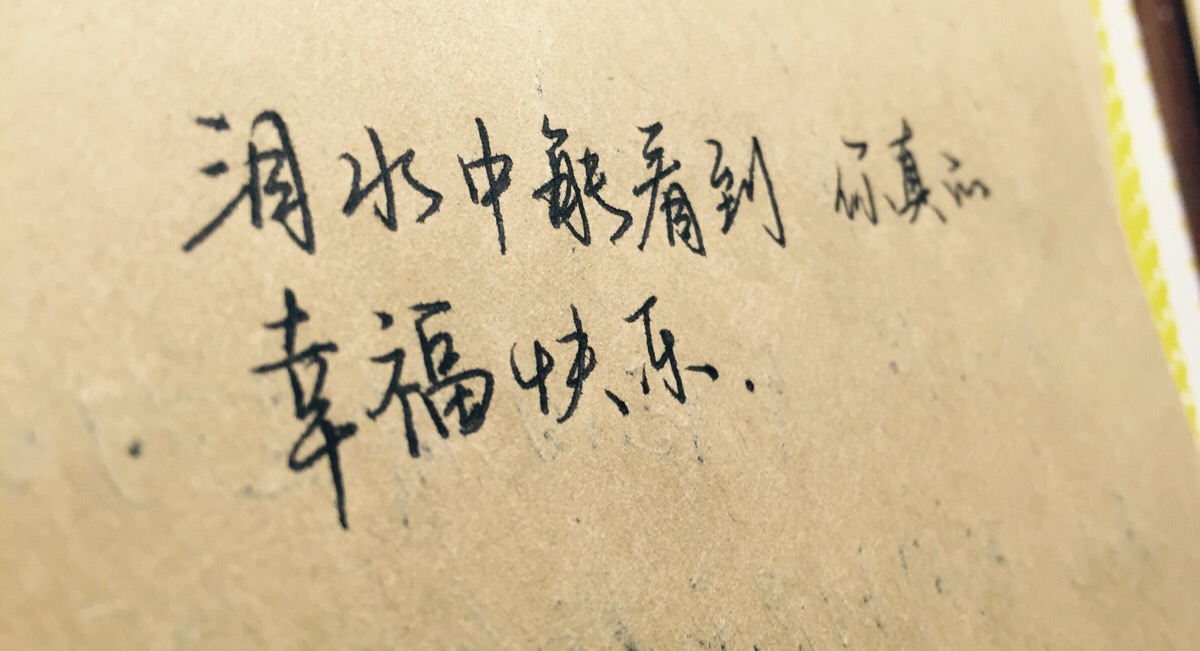 泪水中能看到 你真的
幸福快乐.